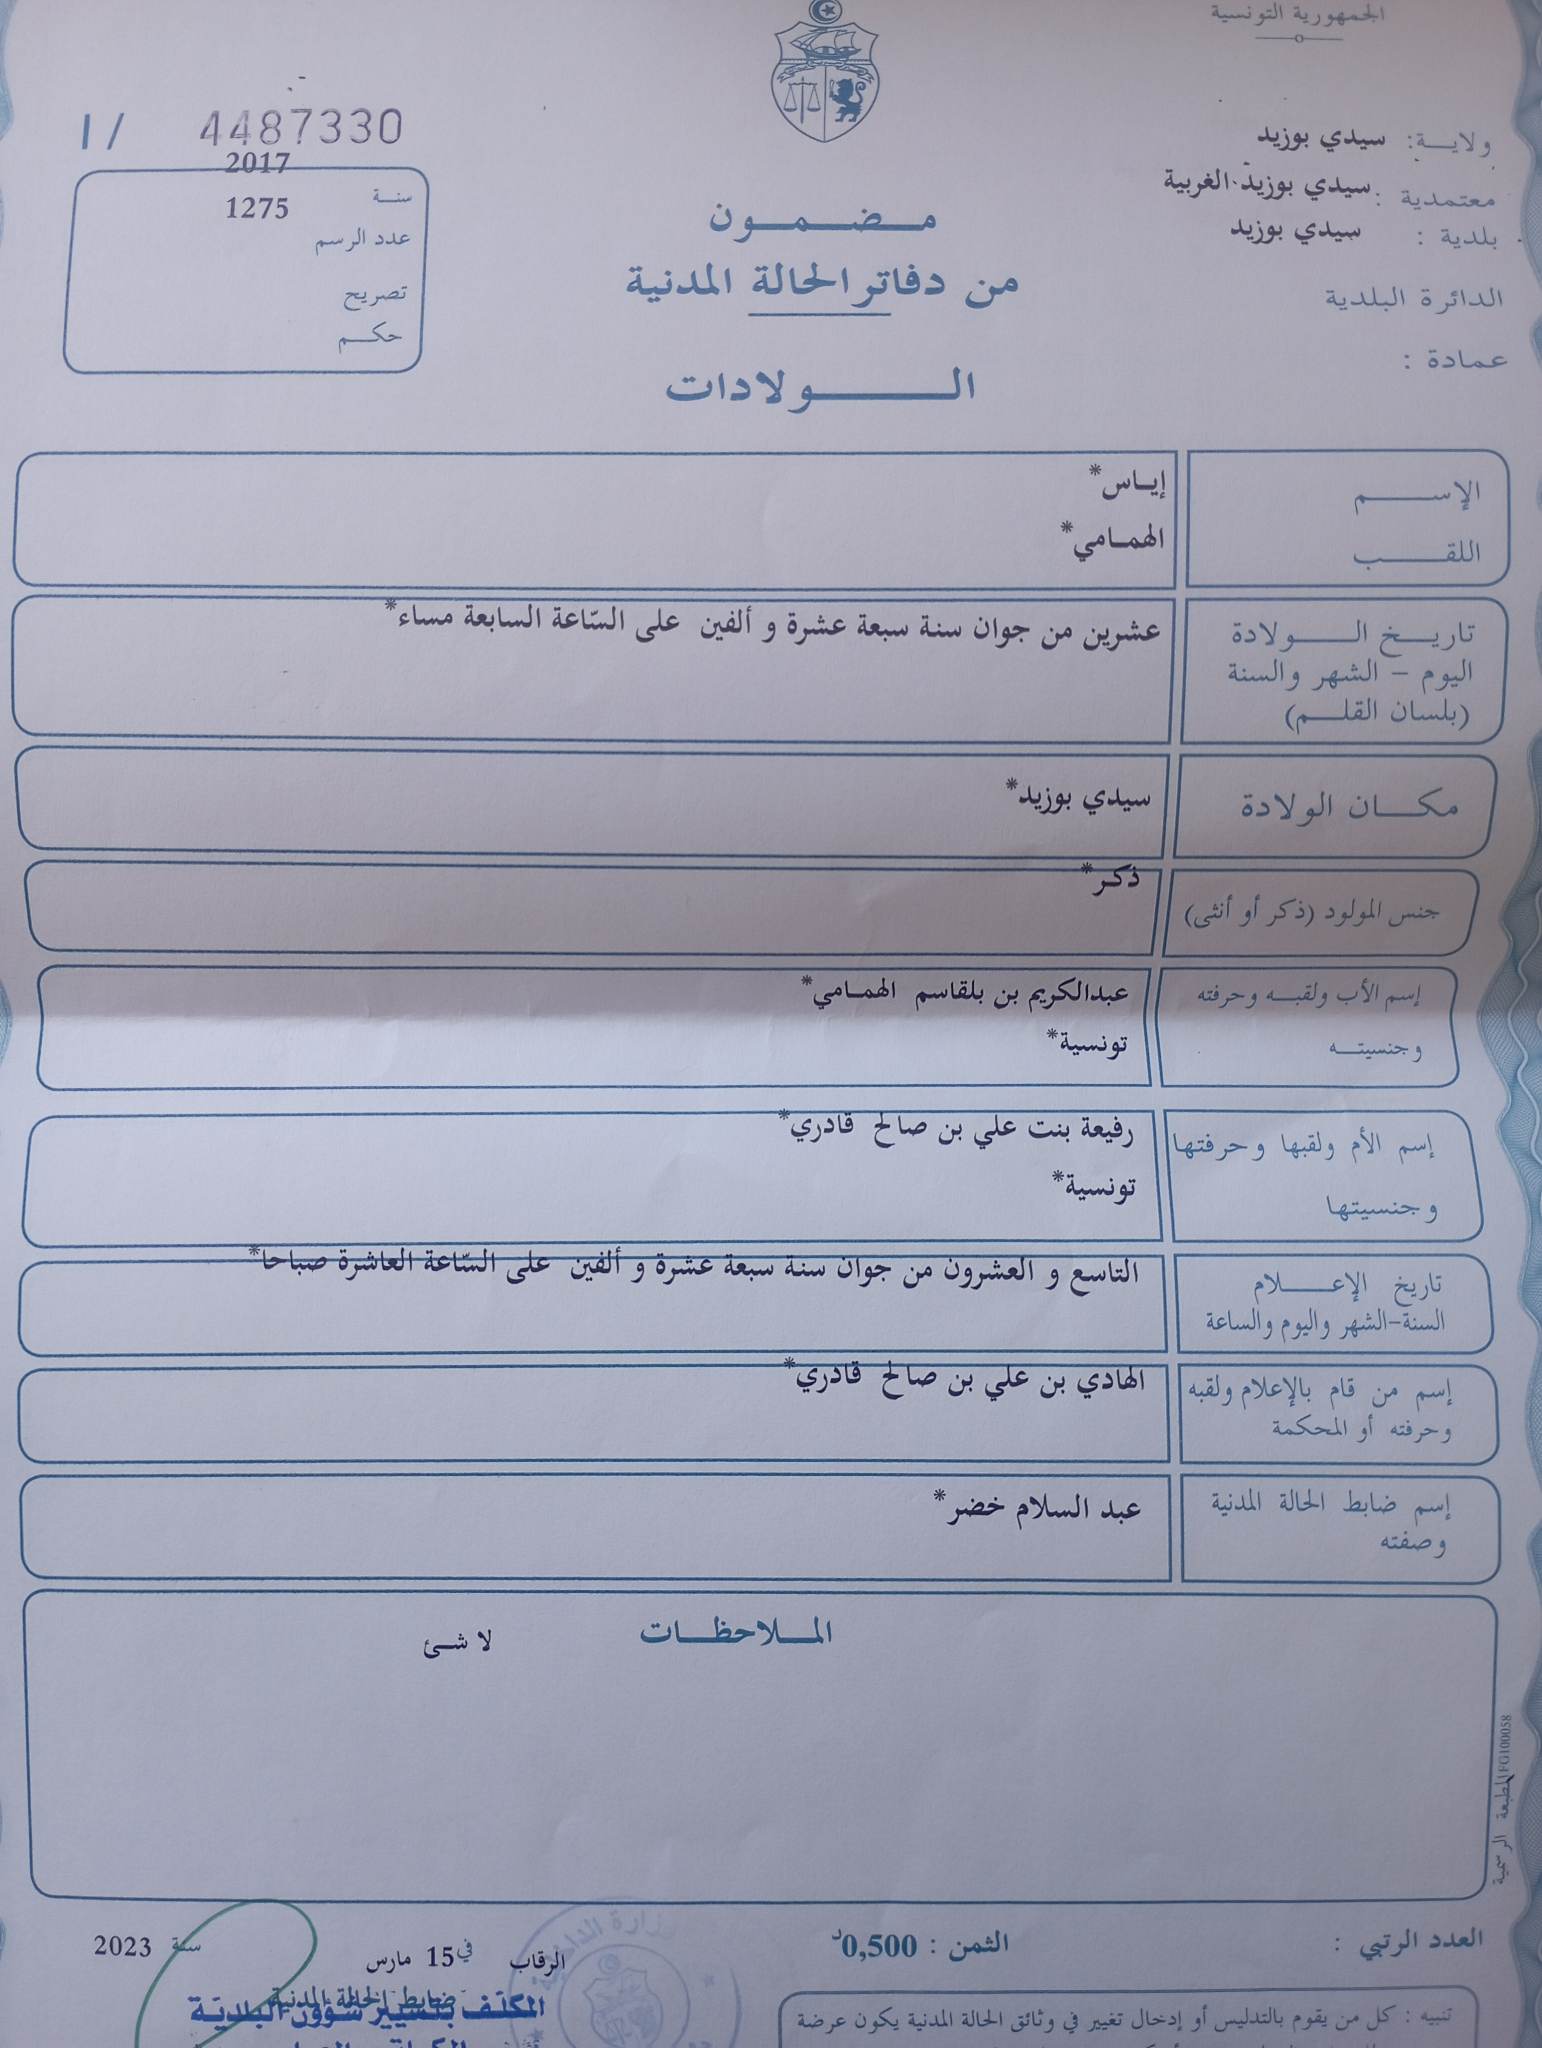 الجمهورية التونسية
ولايـــة: سيدي بوزيد
معتمدية : سيدي بوزيد الغربية
بلدية : سيدي بوزيد
الدائرة البلدية
عمادة :
1 / 4487330
سنـة 2017
عدد الرسم 1275
تصريح
حكـــم
مـضـمــون
من دفاتر الحالة المدنية
الـــولادات
الإســـــم إيـاس*
اللقـــــب الهمـامي*
تاريــخ الـــــولادة عشرين من جوان سنة سبعة عشرة و ألفين على السّاعة السابعة مساء*
اليوم – الشهر والسنة
(بلسان القلـــم)
مكـــان الولادة سيدي بوزيد*
جنس المولود (ذكر أو أنثى) ذكـر*
إسم الأب ولقبــه وحرفته عبدالكريم بن بلقاسم الهمـامي*
وجنسيتــه تونسية*
إسم الأم ولقبها وحرفتها رفيعة بنت علي بن صالح قادري*
وجنسيتها تونسية*
تاريخ الإعـــلام التاسع و العشرون من جوان سنة سبعة عشرة و ألفين على السّاعة العاشرة صباحا*
السنة-الشهر واليوم والساعة
إسم من قام بالإعلام ولقبه الهادي بن علي بن صالح قادري*
وحرفته أو المحكمة
إسم ضابط الحالة المدنية عبد السلام خضر*
وصفته
المــلاحظــات لا شـئ
المطبعة الرسمية IFG100058
العدد الرتبي :
الثمن : 0,500د
الرقاب في 15 مارس سنة 2023
ضابط الحالة المدنية
المكلف بتسيير شؤون البلدية
وزارة الداخلية
تنبيه : كل من يقوم بالتدليس أو إدخال تغيير في وثائق الحالة المدنية يكون عرضة